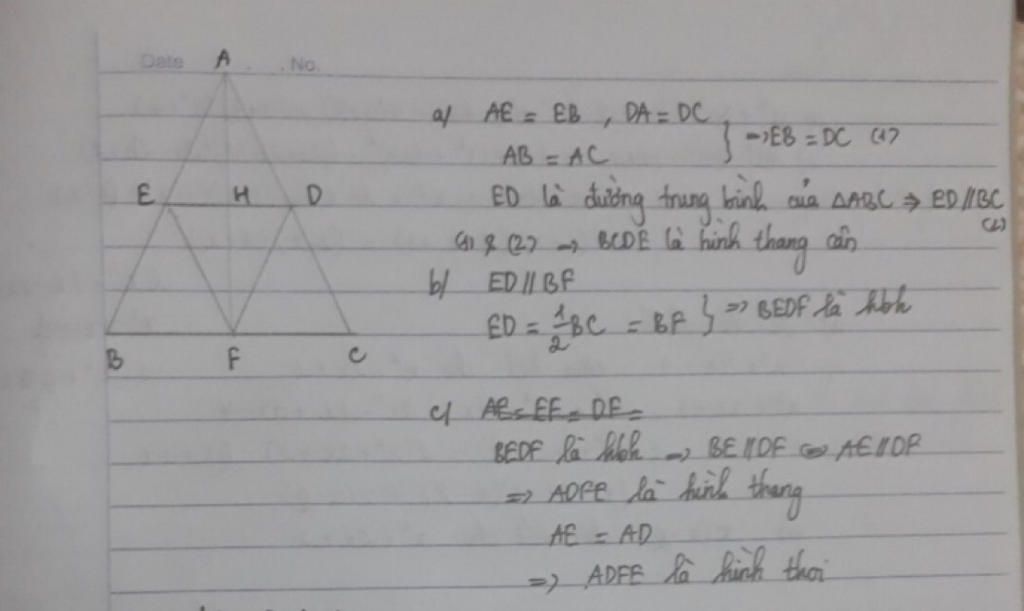 Date No.
A
a) AE = EB , DA = DC
AB = AC } => EB = DC (1)
E H D
ED là đường trung bình của ΔABC => ED // BC
(2)
(1) & (2) => BCDE là hình thang cân
b) ED // BF
ED = 1/2 BC = BF } => BEDF là hbh
B F C
c) AE = EF = DF =
BEDF là hbh => BE // DF <=> AE // DF
=> ADFE là hình thang
AE = AD
=> ADFE là hình thoi